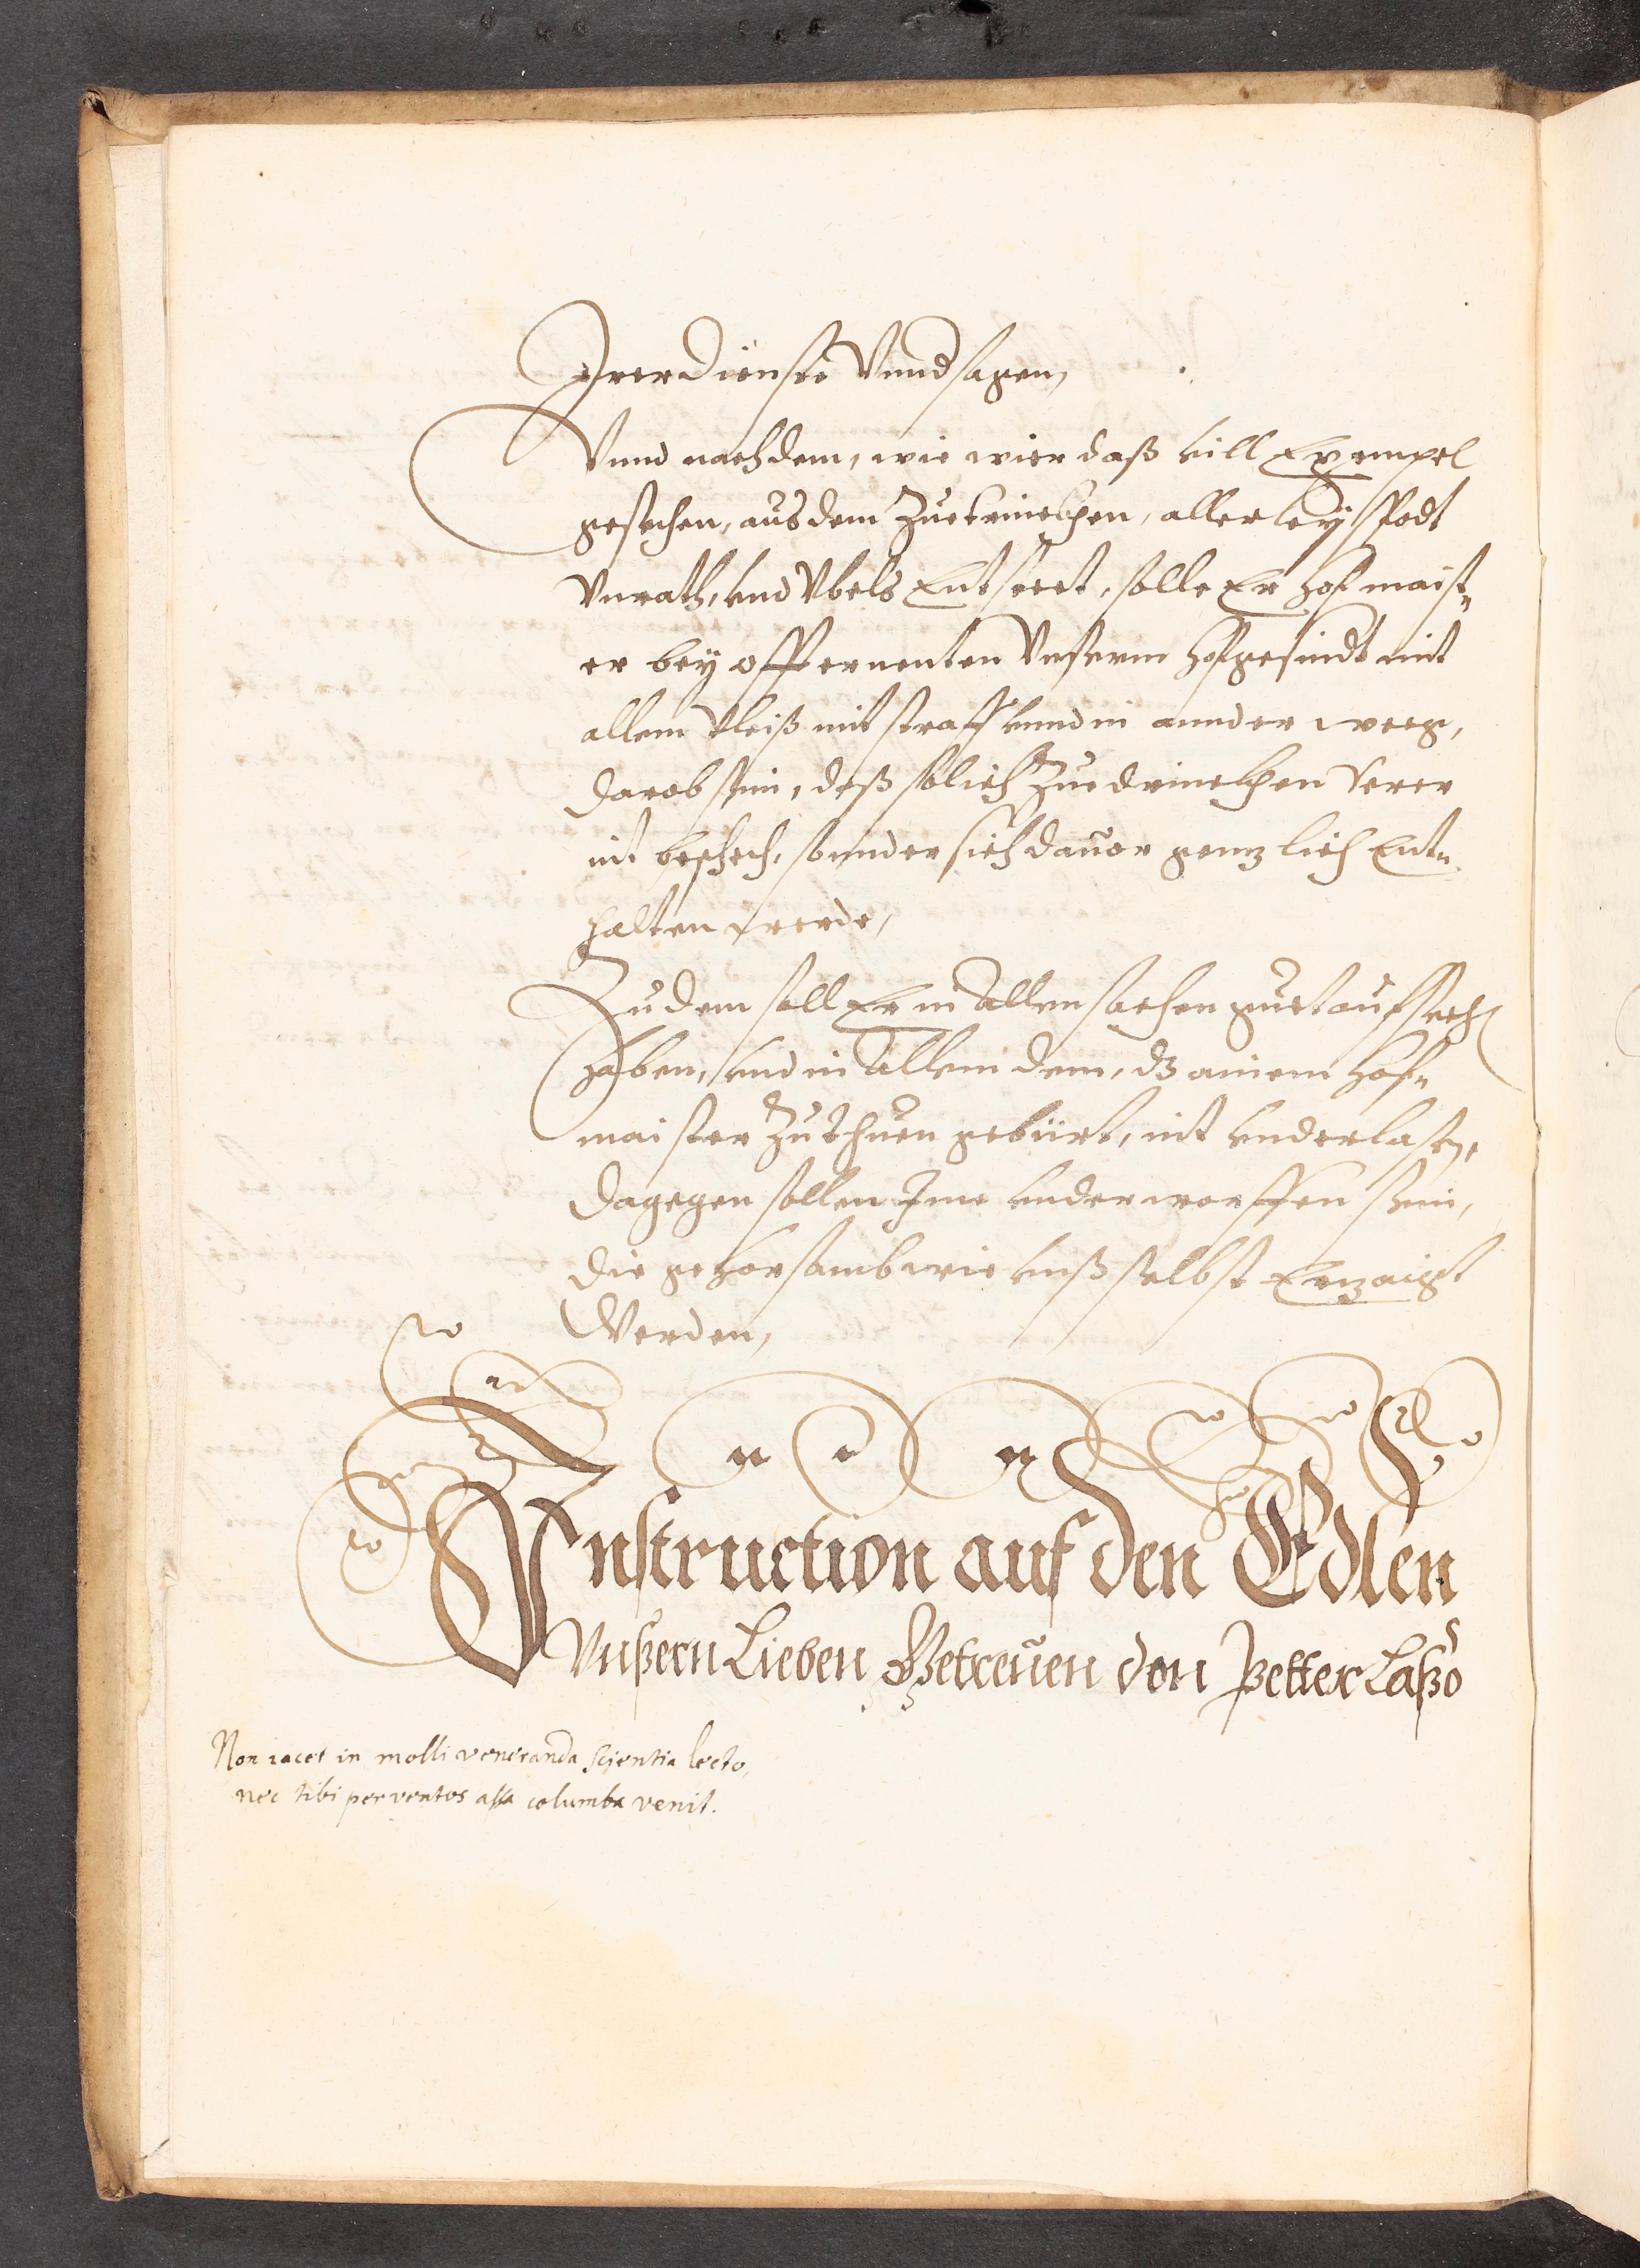 Irer Diensts Vnnd sagen,
Vnnd nachdem, wie wier daß vill Exempel
gesechen, aus dem Zuetrinckhen, allerleÿ Spodt
Vnrath, vnd Vbels Entsteet, solle Er Hofmaist„
er beÿ Unserm Hofgesindt mit
allem Vleiß mit straff vnnd in annder weeg,
darob sein, daß solich Zuedrinckhen Verer
nit beschech, sonnder sich dauor genzlich Ent„
halten werde,
Zu dem soll Er in Allen sachen guet aufsech
haben, vnd in Allem dem, dz ainem Hof„
maister Zu Thuen gebürt, nit vnderlasen,
Dagegen sollen Ime vnderworffen sein,
die gehorsamb wie vnß selbst Erzaigt
Werden,
Instruction auf den Edlen
Vnßern Lieben Getreüen don Petter Laßo
Non iacet in molli veneranda scientia lecto,
nec tibi per ventos assa columba venit.